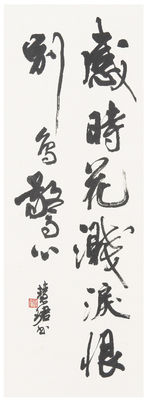 感時花濺淚恨
別鳥驚心